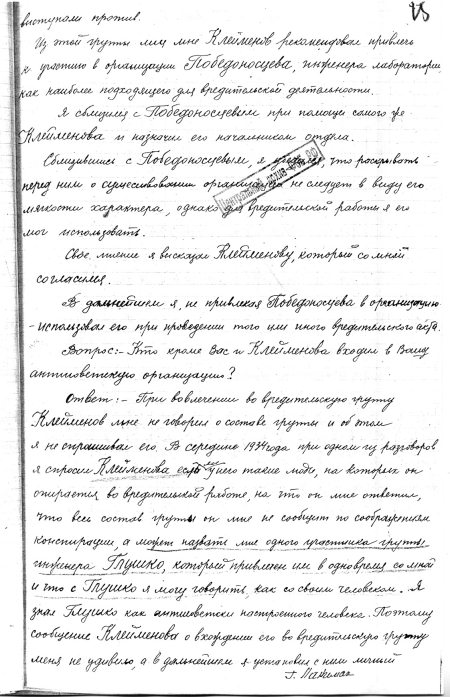 25
выступали против.
Из этой группы лиц мне Клейменов рекомендовал привлечь
к участию в организации Победоносцева, инженера лаборатории
как наиболее подходящего для вредительской деятельности.
Я сблизился с Победоносцевым при помощи самого же
Клейменова и назначил его начальником отдела.
Сблизившись с Победоносцевым, я убедился, что раскрывать
перед ним о существовании организации не следует в виду его
мягкости характера, однако для вредительской работы я его
мог использовать.
Свое мнение я высказал Клейменову, который со мной
согласился.
В дальнейшем я, не привлекая Победоносцева в организацию
- использовал его при проведении того или иного вредительского акта.
Вопрос:- Кто кроме Вас и Клейменова входил в Вашу
антисоветскую организацию?
Ответ:- При вовлечении во вредительскую группу
Клейменов мне не говорил о составе группы и об этом
я не спрашивал его. В середине 1934 года при одном из разговоров
я спросил Клейменова есть ли у него такие люди, на которых он
опирается во вредительской работе, на что он мне ответил,
что весь состав группы он мне не сообщит по соображениям
конспирации, а может назвать мне одного участника группы
инженера Глушко, который привлечен им в одно время со мной
и что с Глушко я могу говорить, как со своим человеком. Я
знал Глушко как антисоветски настроенного человека. Поэтому
сообщение Клейменова о вхождении его во вредительскую группу
меня не удивило, а в дальнейшем я установил с ним личный
Г. Лангемак
Центральный архив ФСБ РФ